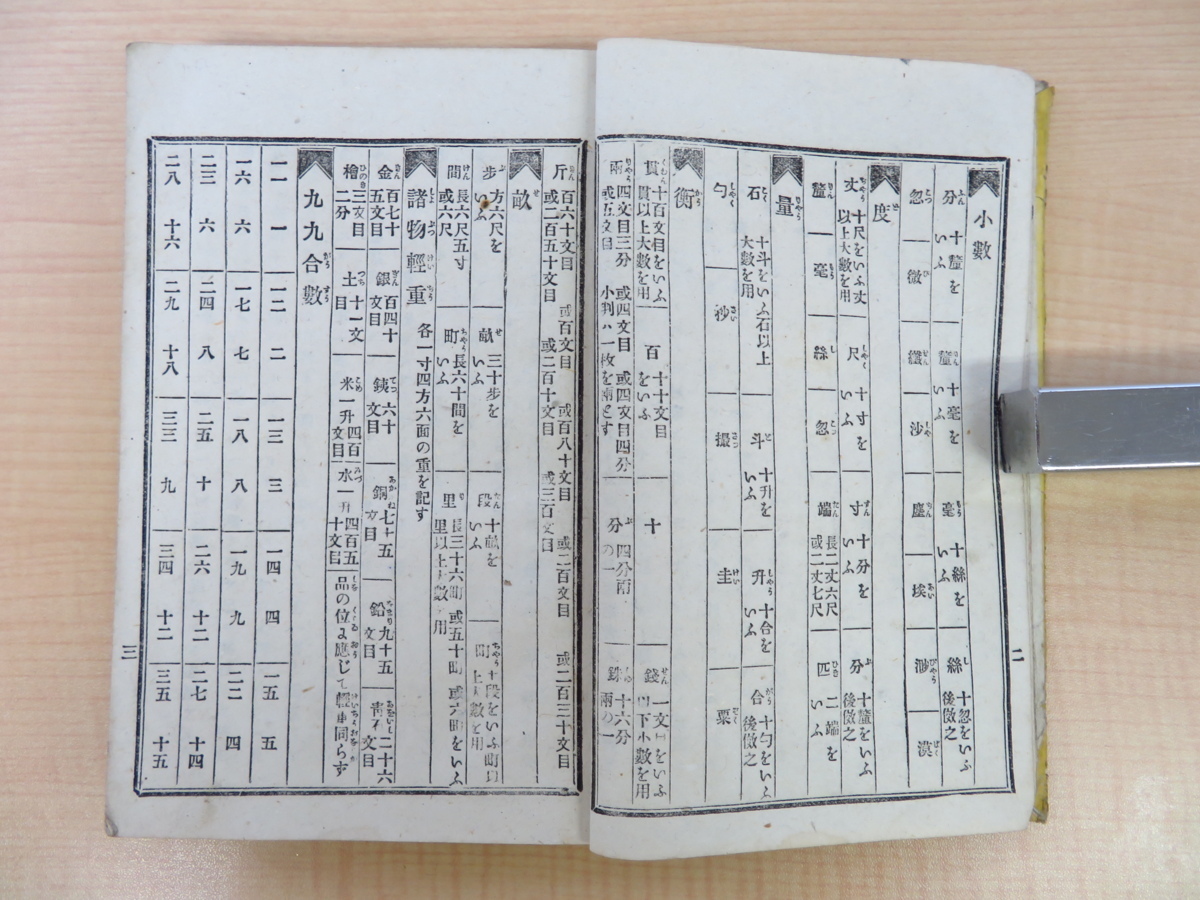 小數
分 十釐をいふ 釐 十毫をいふ 毫 十絲をいふ 絲 十忽をいふ後倣之
忽 微 纎 沙 塵 埃 渺 漠
度
丈 十尺をいふ丈以上大數を用 尺 十寸をいふ 寸 十分をいふ 分 十釐をいふ後倣之
釐 毫 絲 忽 端 長二丈六尺或二丈七尺 匹 二端をいふ
量
石 十斗をいふ石以上大數を用 斗 十升をいふ 升 十合をいふ 合 十勺をいふ後倣之
勺 撮 圭 粟
衡
貫 十百文目をいふ貫以上大數を用 百 十十文目をいふ 十 錢 一文目をいふ以下小數を用
兩 四文目三分 或四文目 或四文目四分 或五文目 小判ハ一枚を兩とす 分 四分兩の一 銖 十六分兩の一
二
斤 百六十文目 或百文目 或百八十文目 或二百文目 或二百三十文目
或二百五十文目 或二百十文目 或三百文目
畝
步 方六尺をいふ 畝 三十步をいふ 段 十畝をいふ 町 十段をいふ町以上大數を用
間 長六尺五寸或六尺 町 長六十間をいふ 里 長三十六町 或五十町 或六町をいふ里以上大數ヲ用
諸物輕重 各一寸四方六面の重を記す
金 百七十五文目 銀 百四十文目 鐵 六十文目 銅 七十五文目 鉛 九十五文目 靑石 二十六文目
檜 三文目二分 土 十一文目 米 一升四百文目 水 一升四百五十文目 品の位に應じて輕重同らず
九九合數
一一 一 一二 二 一三 三 一四 四 一五 五
一六 六 一七 七 一八 八 一九 九 二二 四
二三 六 二四 八 二五 十 二六 十二 二七 十四
二八 十六 二九 十八 三三 九 三四 十二 三五 十五
三